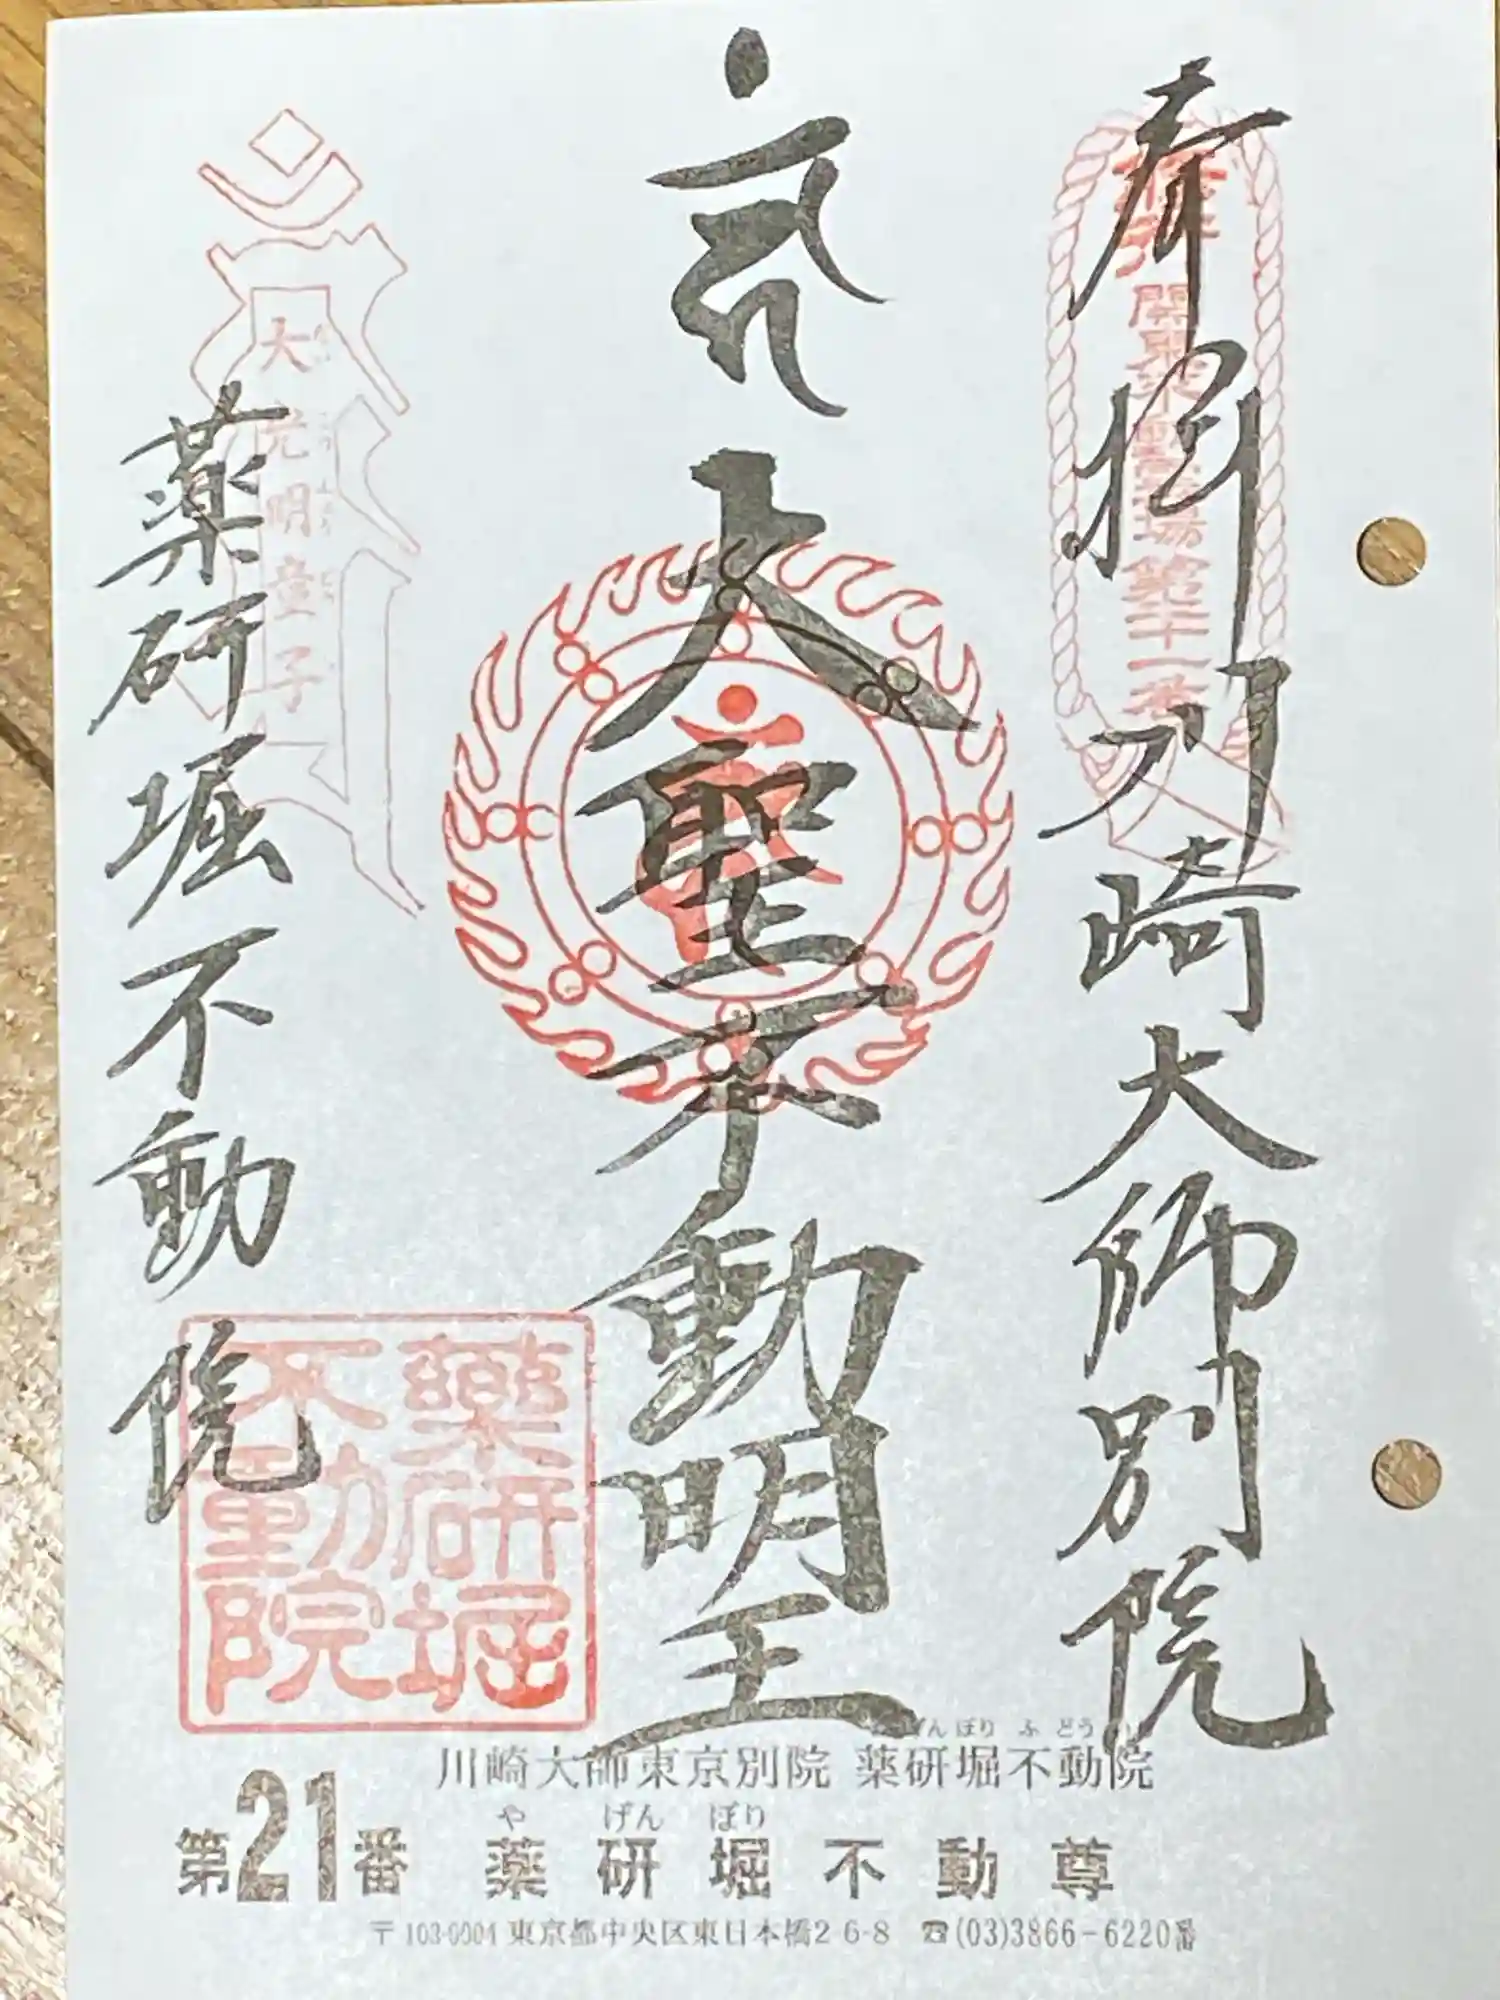 奉拝 川崎大師別院
奉拝
関東不動霊場第二十一番
大聖不動明王
大光明童子
薬研堀不動院
薬研堀
不動院
げんぼり ふどう
川崎大師東京別院 薬研堀不動院
や げん ぼり
第21番 薬研堀不動尊
〒103-0004 東京都中央区東日本橋2 6-8 ☎(03)3866-6220番